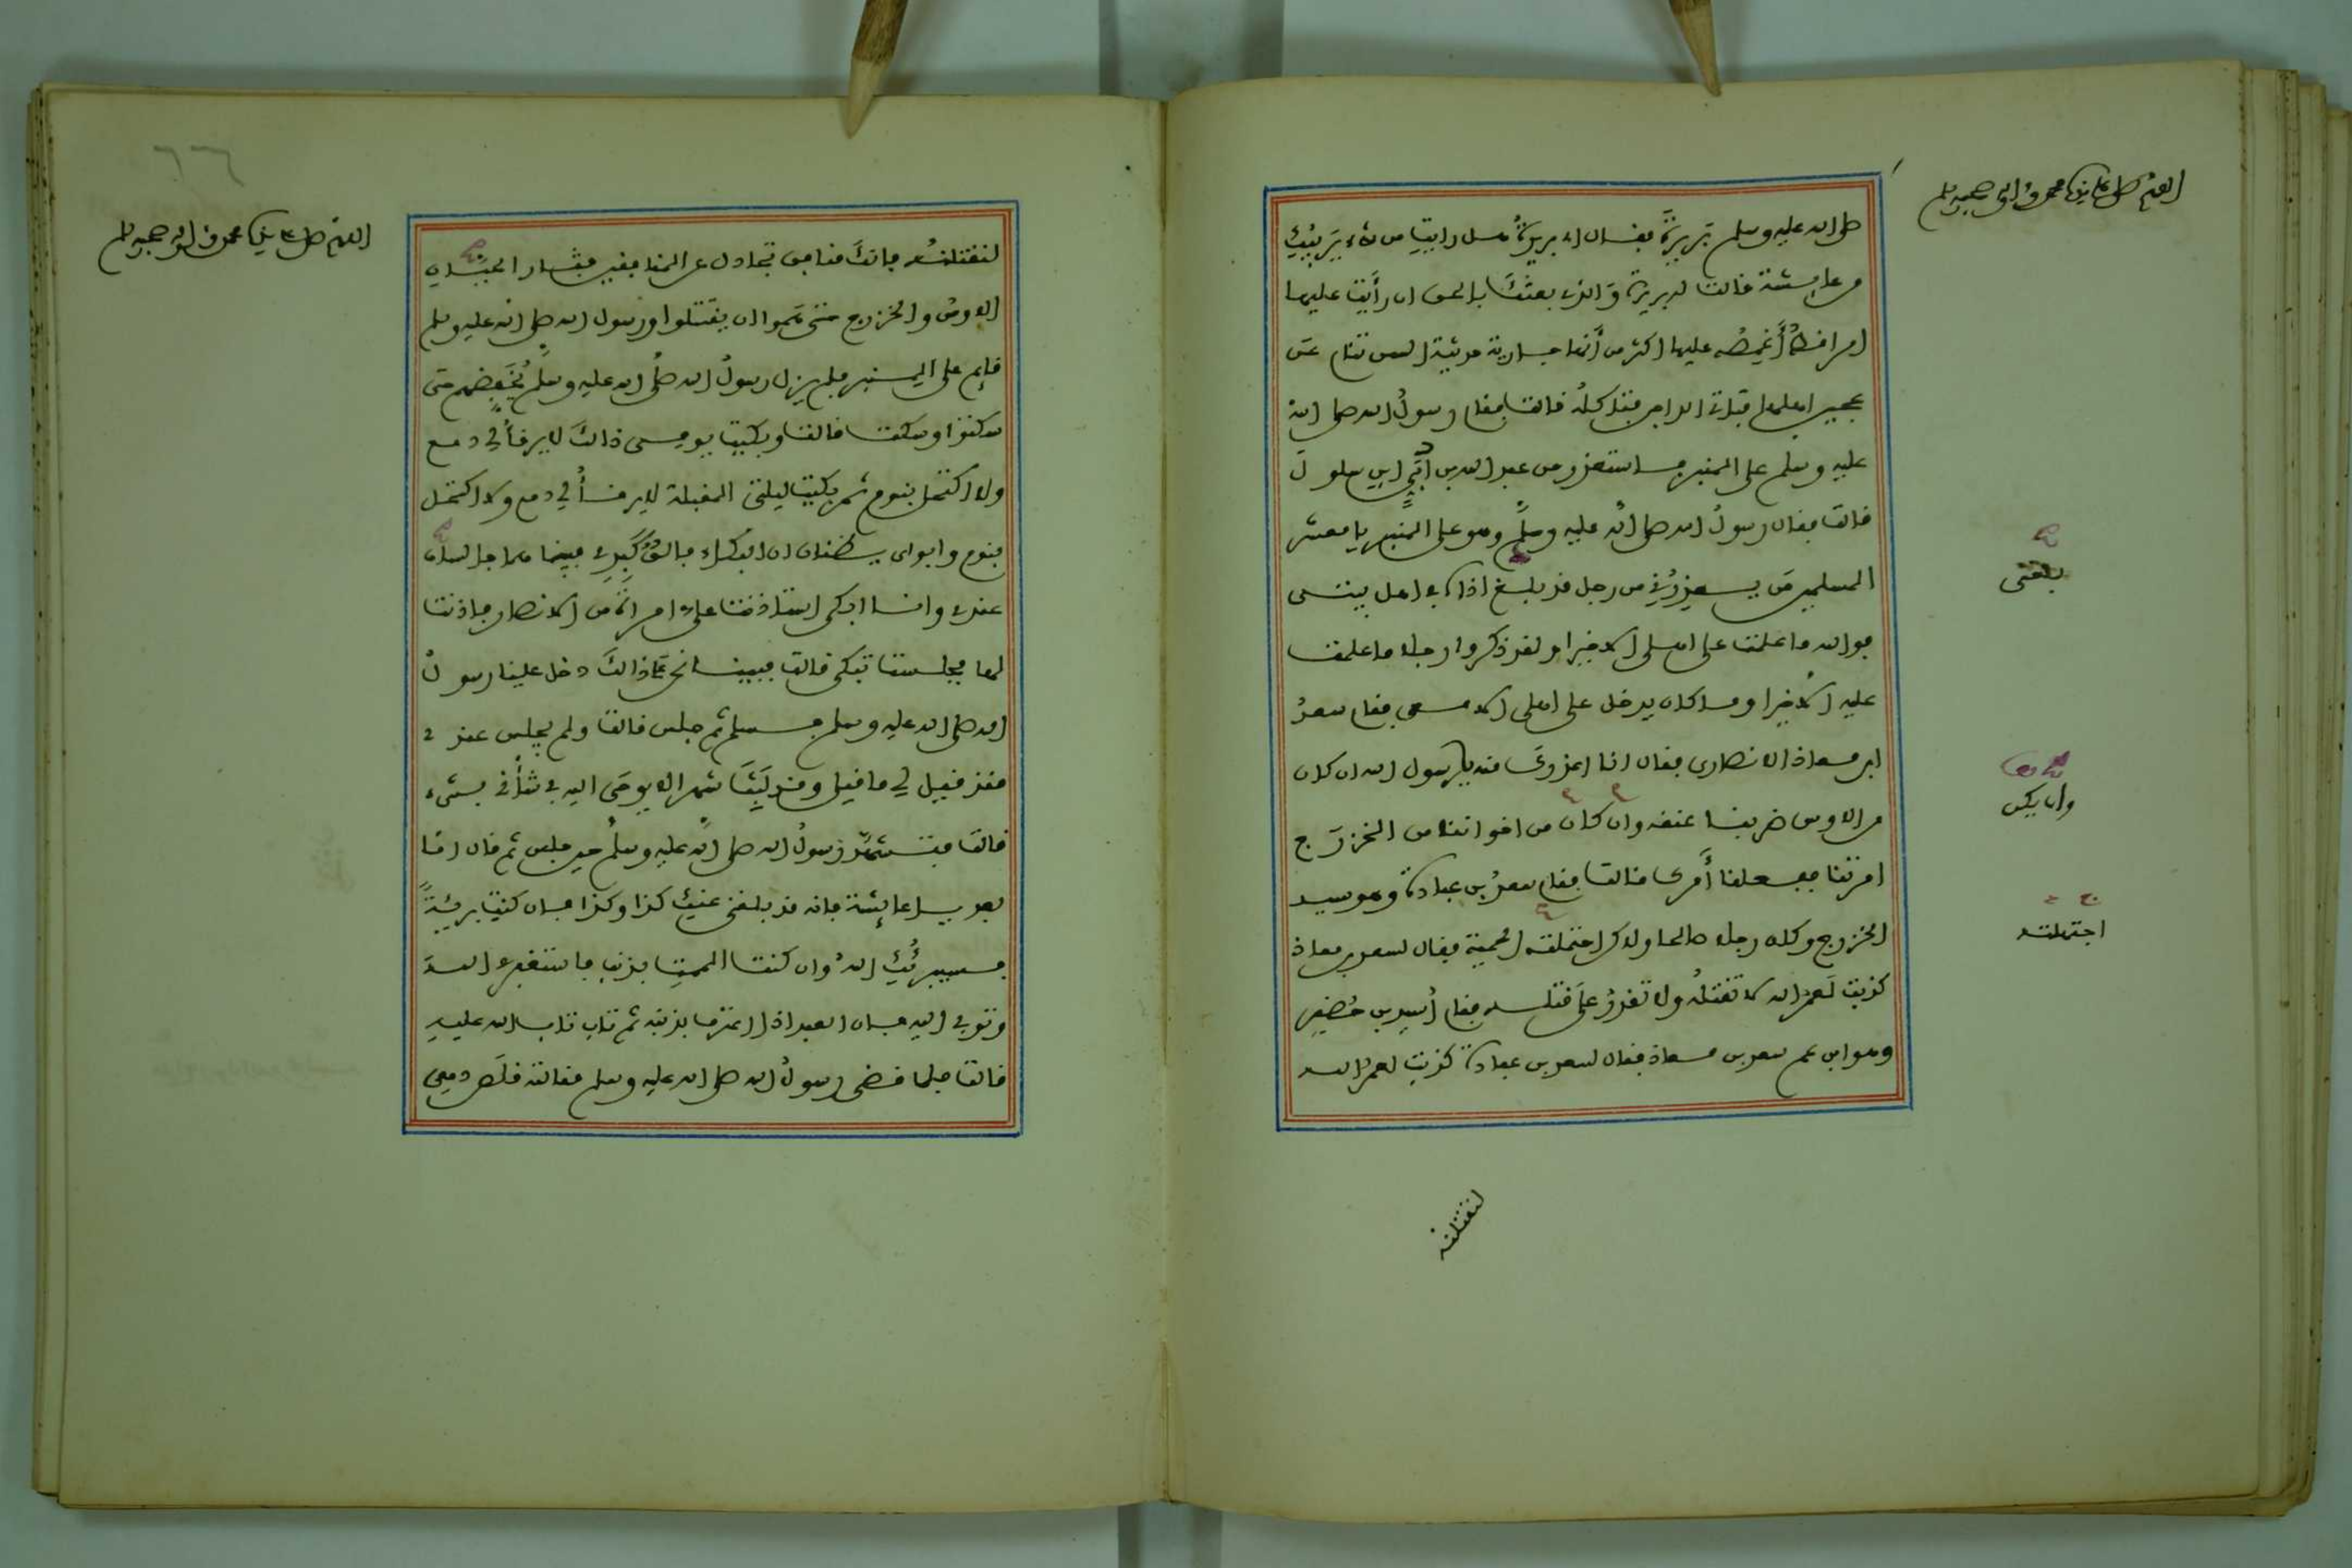 اللهم صل على نبينا محمد وآله وصحبه وسلم
صلى الله عليه وسلم بَرِيرَةَ فقال اي بريرةُ هل رايتِ من شىء يَرِيبُكِ
من عايشة قالت له بريرة وَالذى بعثكَ بالحق ان رأيت عليها
امرا قطُّ أَغمِصُه عليها اكثر من أنها جارية حديثة السن تنام عَن
عجين اهلها فتاتى الداجن فتاكلُه قالت فقام رسولُ الله صلى الله
عليه وسلم على المنبر فاستعذر من عبد الله بن اُبَيٍّ ابنِ سلولَ
قالت فقال رسولُ الله صلى الله عليه وسلم وهو على المنبر يا معشر
المسلمين مَن يعذِرُنِى من رجل قد بلغ اذاه فى اهل بيتى
بلغنى
فوالله ما علمت على اهلى الا خيرا ولقد ذكروا رجلا ما علمت
عليه الا خيرا وما كان يدخل على اهلى الا معى فقام سعدُ
ابن معاذ الانصارى فقال انا اعذركَ منه يا رسول الله ان كان
من الاوس ضربنا عنقه وان كان من اخواننا من الخزرَج
وان يكن
امرتنا ففعلنا أَمرك قالت فقام سعدُ بن عبادة وهو سيد
الخزرج وكان رجلا صالحا ولاكن احتملته الحمية فقال لسعد بن معاذ
اجتهلته
كذبت لَعمرُ الله لا تقتلُه ولا تقدرُ على قتله فقام أُسيد بن حُضَير
وهو ابن عم سعد بن معاذ فقال لسعد بن عبادة كذبت لعمرُ الله
لنقتلنه
٦٦
اللهم صل على نبينا محمد وآله وصحبه وسلم
لنقتلنه فانكَ منافق تجادل عن المنافقين فثار الحيان
الاوسُ والخزرج حتى هَموا ان يقتتلوا ورسول الله صلى الله عليه وسلم
قايم على المنبر فلم يزل رسولُ الله صلى الله عليه وسلم يُخَفِّضهم حتى
سكتوا وسكت قالت وبكيت يومى ذالكَ لا يرقأُ لي دمع
ولا اكتحل بنوم ثم بكيت ليلتى المقبلة لا يرقأُ لي دمع ولا اكتحل
بنوم وابواى يظنان ان البكاء فالقٌ كَبِدى فبينما هما جالسان
عندى وانا ابكى استاذنت علىَّ امراةٌ من الانصار فاذنت
لها فجلست تبكى قالت فبينا نحن على ذالكَ دخل علينا رسولُ
الله صلى الله عليه وسلم فسلم ثم جلس قالت ولم يجلس عندى
منذ قيل لي ما قيل وقد لَبِثَ شهرا لا يوحَى اليه فى شأنى بشىء
قالت فتشهَّدَ رسولُ الله صلى الله عليه وسلم حين جلس ثم قال اما
بعد يا عايشة فانه قد بلغنى عنكِ كذا وكذا فان كنتِ بريئةً
فسيبرئُكِ اللهُ وان كنت الممتِ بذنب فاستغفرى اللهَ
وتوبى اليه فان العبد اذا اعترف بذنبه ثم تاب تاب الله عليه
قالت فلما قضى رسولُ الله صلى الله عليه وسلم مقالته قلَص دمعى